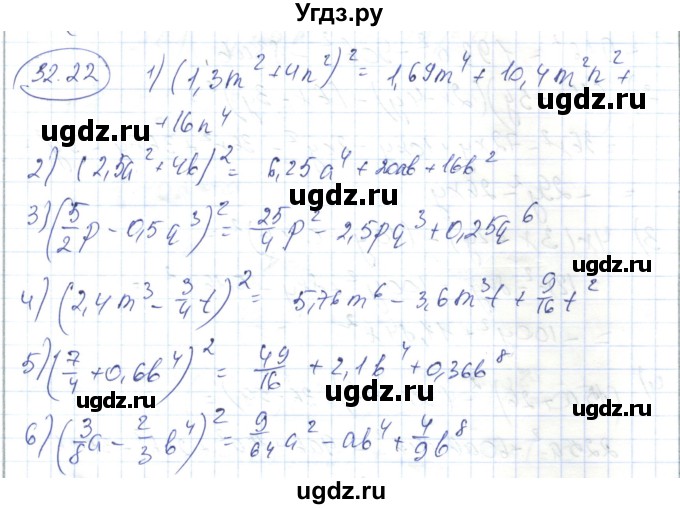 Угдз.ру
32.22 1) (1,3m² + 4n²)² = 1,69m⁴ + 10,4m²n² +
+ 16n⁴
ugdz.ru ugdz.ru
2) (2,5a² + 4b)² = 6,25a⁴ + 20ab + 16b²
3) (5/2 p - 0,5q³)² = 25/4 p² - 2,5pq³ + 0,25q⁶
ugdz.ru ugdz.ru
4) (2,4m³ - 3/4 t)² = 5,76m⁶ - 3,6m³t + 9/16 t²
ugdz.ru ugdz.ru
5) (7/4 + 0,6b⁴)² = 49/16 + 2,1b⁴ + 0,36b⁸
ugdz.ru ugdz.ru
6) (3/8 a - 2/3 b⁴)² = 9/64 a² - ab⁴ + 4/9 b⁸
ugdz.ru ugdz.ru